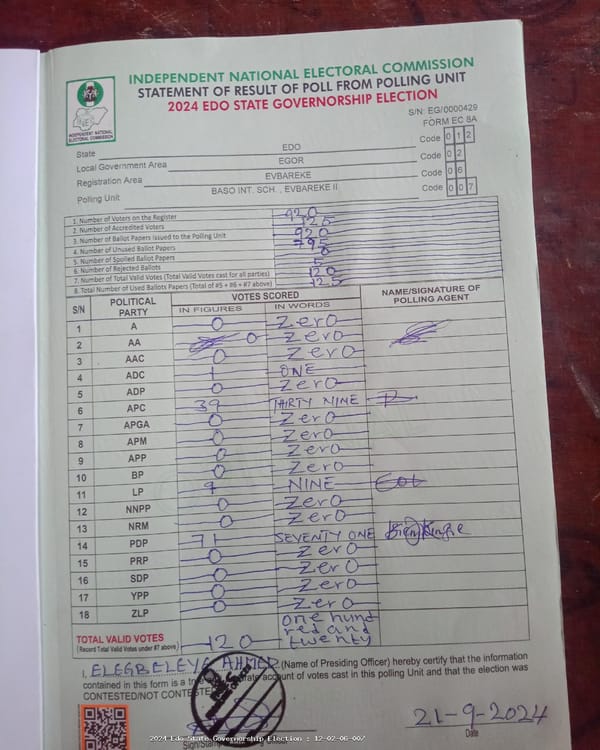 INDEPENDENT NATIONAL ELECTORAL COMMISSION
STATEMENT OF RESULT OF POLL FROM POLLING UNIT
2024 EDO STATE GOVERNORSHIP ELECTION
INDEPENDENT NATIONAL ELECTORAL COMMISSION
S/N: EG/0000429
FORM EC 8A
State EDO Code 0 1 2
Local Government Area EGOR Code 0 2
Registration Area EVBAREKE Code 0 6
Polling Unit BASO INT. SCH. , EVBAREKE II Code 0 0 7
1. Number of Voters on the Register 920
2. Number of Accredited Voters 125
3. Number of Ballot Papers Issued to the Polling Unit 920
4. Number of Unused Ballot Papers 795
5. Number of Spoiled Ballot Papers 0
6. Number of Rejected Ballots 5
7. Number of Total Valid Votes (Total Valid Votes cast for all parties) 120
8. Total Number of Used Ballots Papers (Total of #5 + #6 + #7 above) 125
S/N POLITICAL PARTY VOTES SCORED NAME/SIGNATURE OF POLLING AGENT
IN FIGURES IN WORDS
1 A 0 Zero
2 AA 0 Zero
3 AAC 0 Zero
4 ADC 1 ONE
5 ADP 0 Zero
6 APC 39 THIRTY NINE
7 APGA 0 Zero
8 APM 0 Zero
9 APP 0 Zero
10 BP 0 Zero
11 LP 9 NINE
12 NNPP 0 Zero
13 NRM 0 Zero
14 PDP 71 SEVENTY ONE
15 PRP 0 Zero
16 SDP 0 Zero
17 YPP 0 Zero
18 ZLP 0 Zero
TOTAL VALID VOTES 120 one hund
(Record Total Valid Votes under #7 above) red and
twenty
I, ELEGBELEYE AHMED (Name of Presiding Officer) hereby certify that the information
contained in this form is a true account of votes cast in this polling Unit and that the election was
CONTESTED/NOT CONTESTED
21-9-2024
Date
2024 Edo State Governorship Election : 12-02-06-007
Sign/Stamp